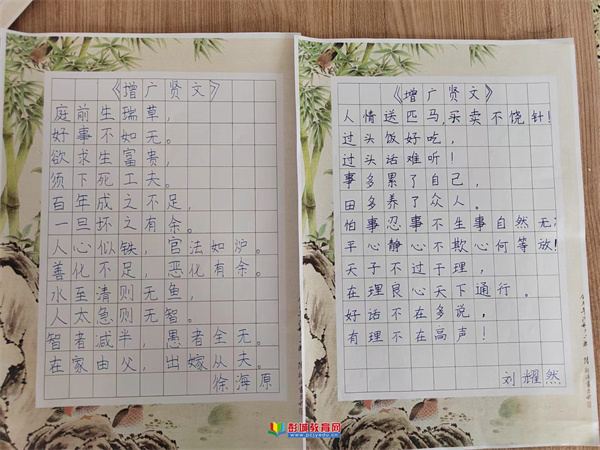 《增广贤文》
庭前生瑞草，
好事不如无。
欲求生富贵，
须下死工夫。
百年成之不足，
一旦坏之有余。
人心似铁，官法如炉。
善化不足，恶化有余。
水至清则无鱼，
人太急则无智。
智者减半，愚者全无。
在家由父，出嫁从夫。
徐海原
《增广贤文》
人情送匹马，买卖不饶针！
过头饭好吃，
过头话难听！
事多累了自己，
田多养了众人。
怕事忍事不生事自然无
平心静心不欺心何等放！
天子不过于理，
在理良心天下通行。
好话不在多说，
有理不在高声！
刘耀然
彭城教育网
www.pcsyedu.cn